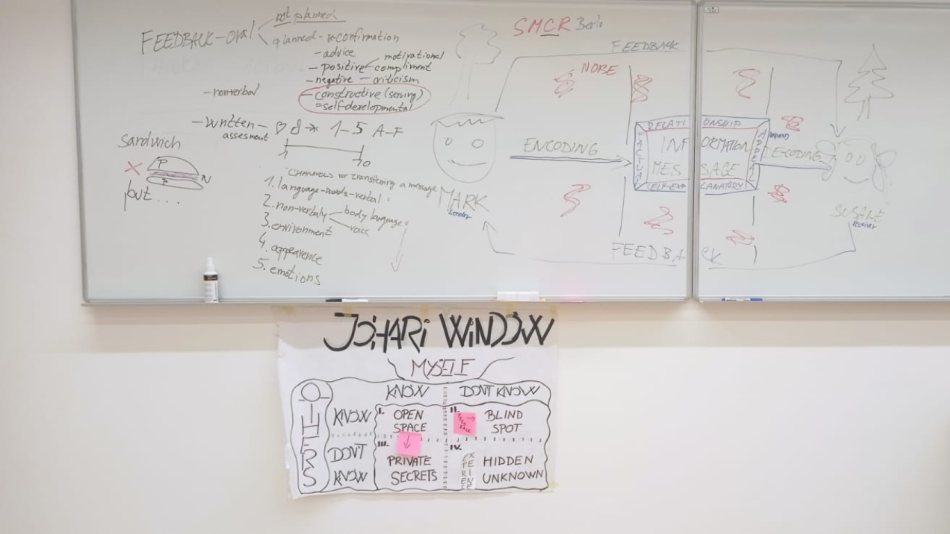 not planned
FEEDBACK-oral
planned-reconfirmation
-advice
motivational
-positive compliment
-negative-criticism
-constructive (serving)
=selfdevelopmental
-nonverbal
-written-
assessment
1-5 A-F
1
10
Sandwich
P
N
put...
a message
1. language-words-verbal
2. non-verbaly
body language
voice
3. environment
4. appearence
5. emotions
SMCR
FEEDBACK
ENCODING
RELATIONSHIP
INFORMATION
MESSAGE
FACTUAL
APPEAL
MARK
Sender
receiver
FEEDBACK
JOHARI WINDOW
MYSELF
KNOW
DONT KNOW
OTHERS
KNOW
I.
OPEN
SPACE
II.
BLIND
SPOT
DON'T
KNOW
III.
PRIVATE
SECRETS
IV.
HIDDEN
UNKNOWN